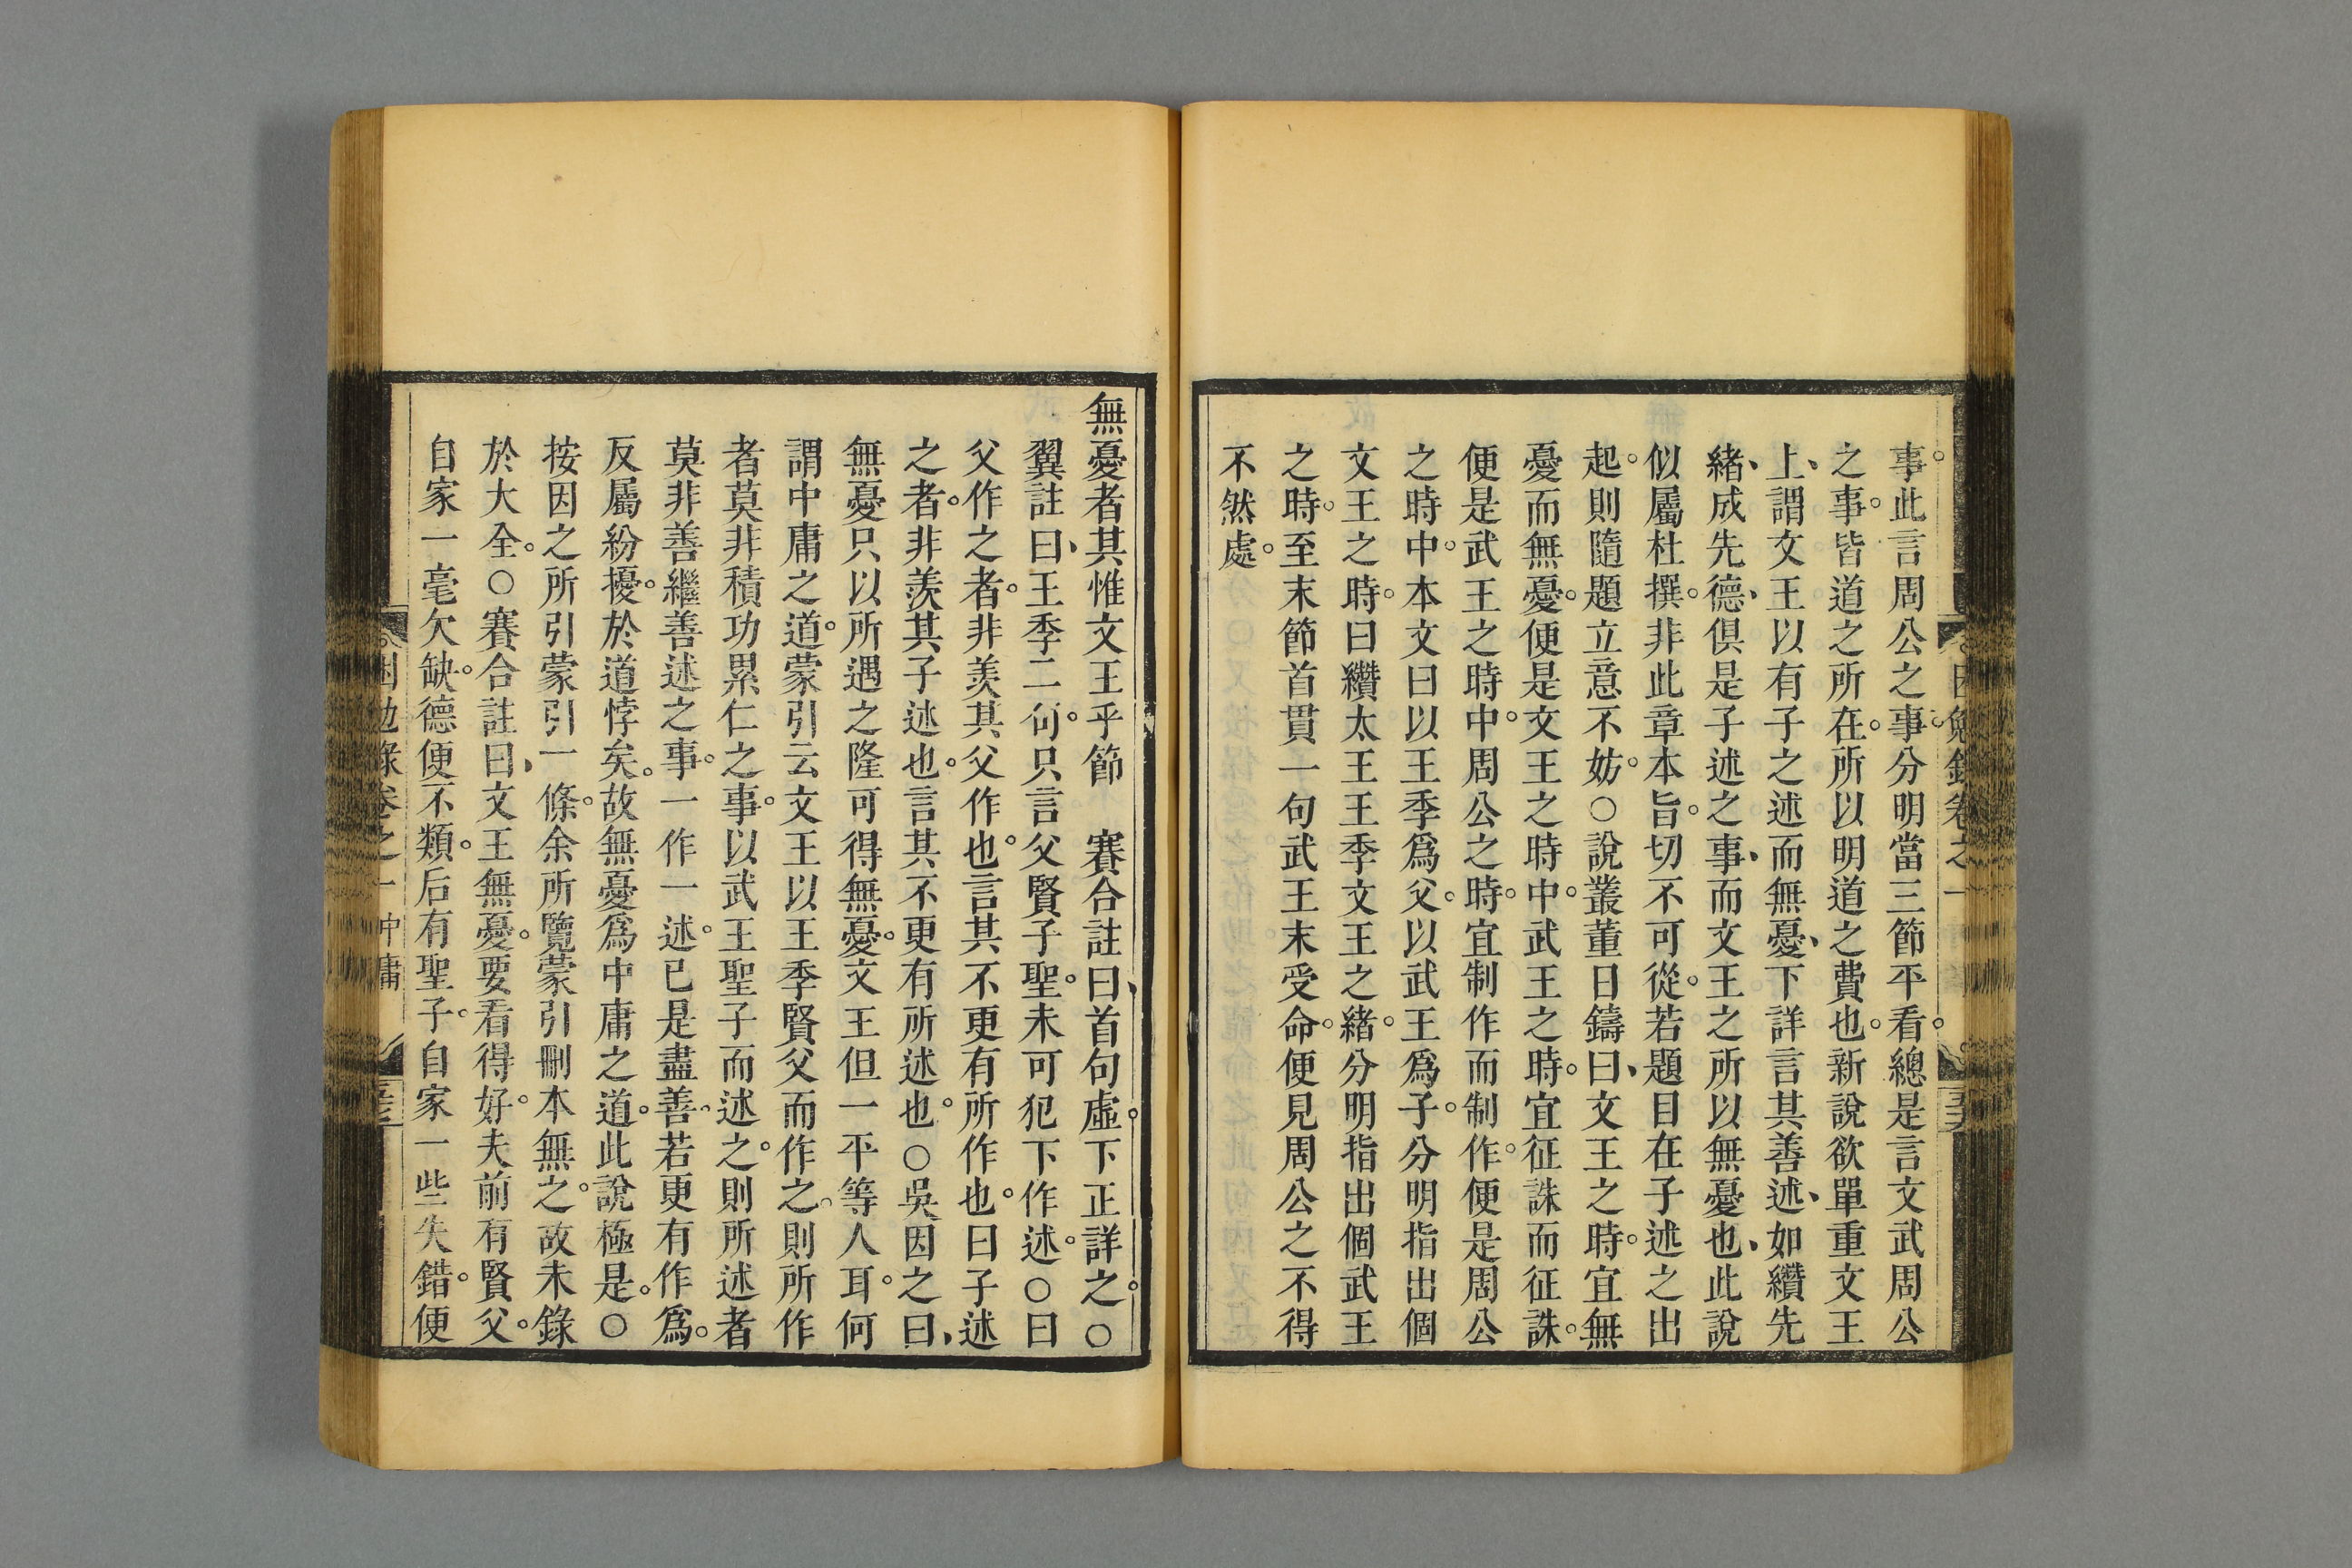 事。此言周公之事。分明當三節平看。總是言文武周公
之事。皆道之所在。所以明道之費也。新說欲單重文王
上、謂文王以有子之述而無憂、下詳言其善述、如纘先
緒、成先德、俱是子述之事、而文王之所以無憂也、此說
似屬杜撰。非此章本旨。切不可從。若題目在子述之出
起。則隨題立意不妨。○說叢董日鑄曰、文王之時。宜無
憂而無憂。便是文王之時中。武王之時。宜征誅而征誅。
便是武王之時中。周公之時。宜制作而制作。便是周公
之時中。本文曰以王季爲父。以武王爲子。分明指出個
文王之時。曰纘太王王季文王之緒。分明指出個武王
之時。至末節首貫一句武王末受命。便見周公之不得
不然處。
無憂者其惟文王乎節　賽合註曰、首句虛。下正詳之。○
翼註曰、王季二句。只言父賢子聖。未可犯下作述。○曰
父作之者。非羨其父作也。言其不更有所作也。曰子述
之者。非羨其子述也。言其不更有所述也。○吳因之曰、
無憂只以所遇之隆可得無憂。文王但一平等人耳。何
謂中庸之道。蒙引云文王以王季賢父而作之。則所作
者莫非積功累仁之事。以武王聖子而述之。則所述者
莫非善繼善述之事。一作一述。已是盡善。若更有作爲。
反屬紛擾。於道悖矣。故無憂爲中庸之道。此說極是。○
按因之所引蒙引一條。余所覽蒙引刪本無之。故未錄
於大全。○賽合註曰、文王無憂。要看得好。夫前有賢父。
自家一毫欠缺。德便不類。后有聖子。自家一些失錯。便
困勉錄卷之一　中庸